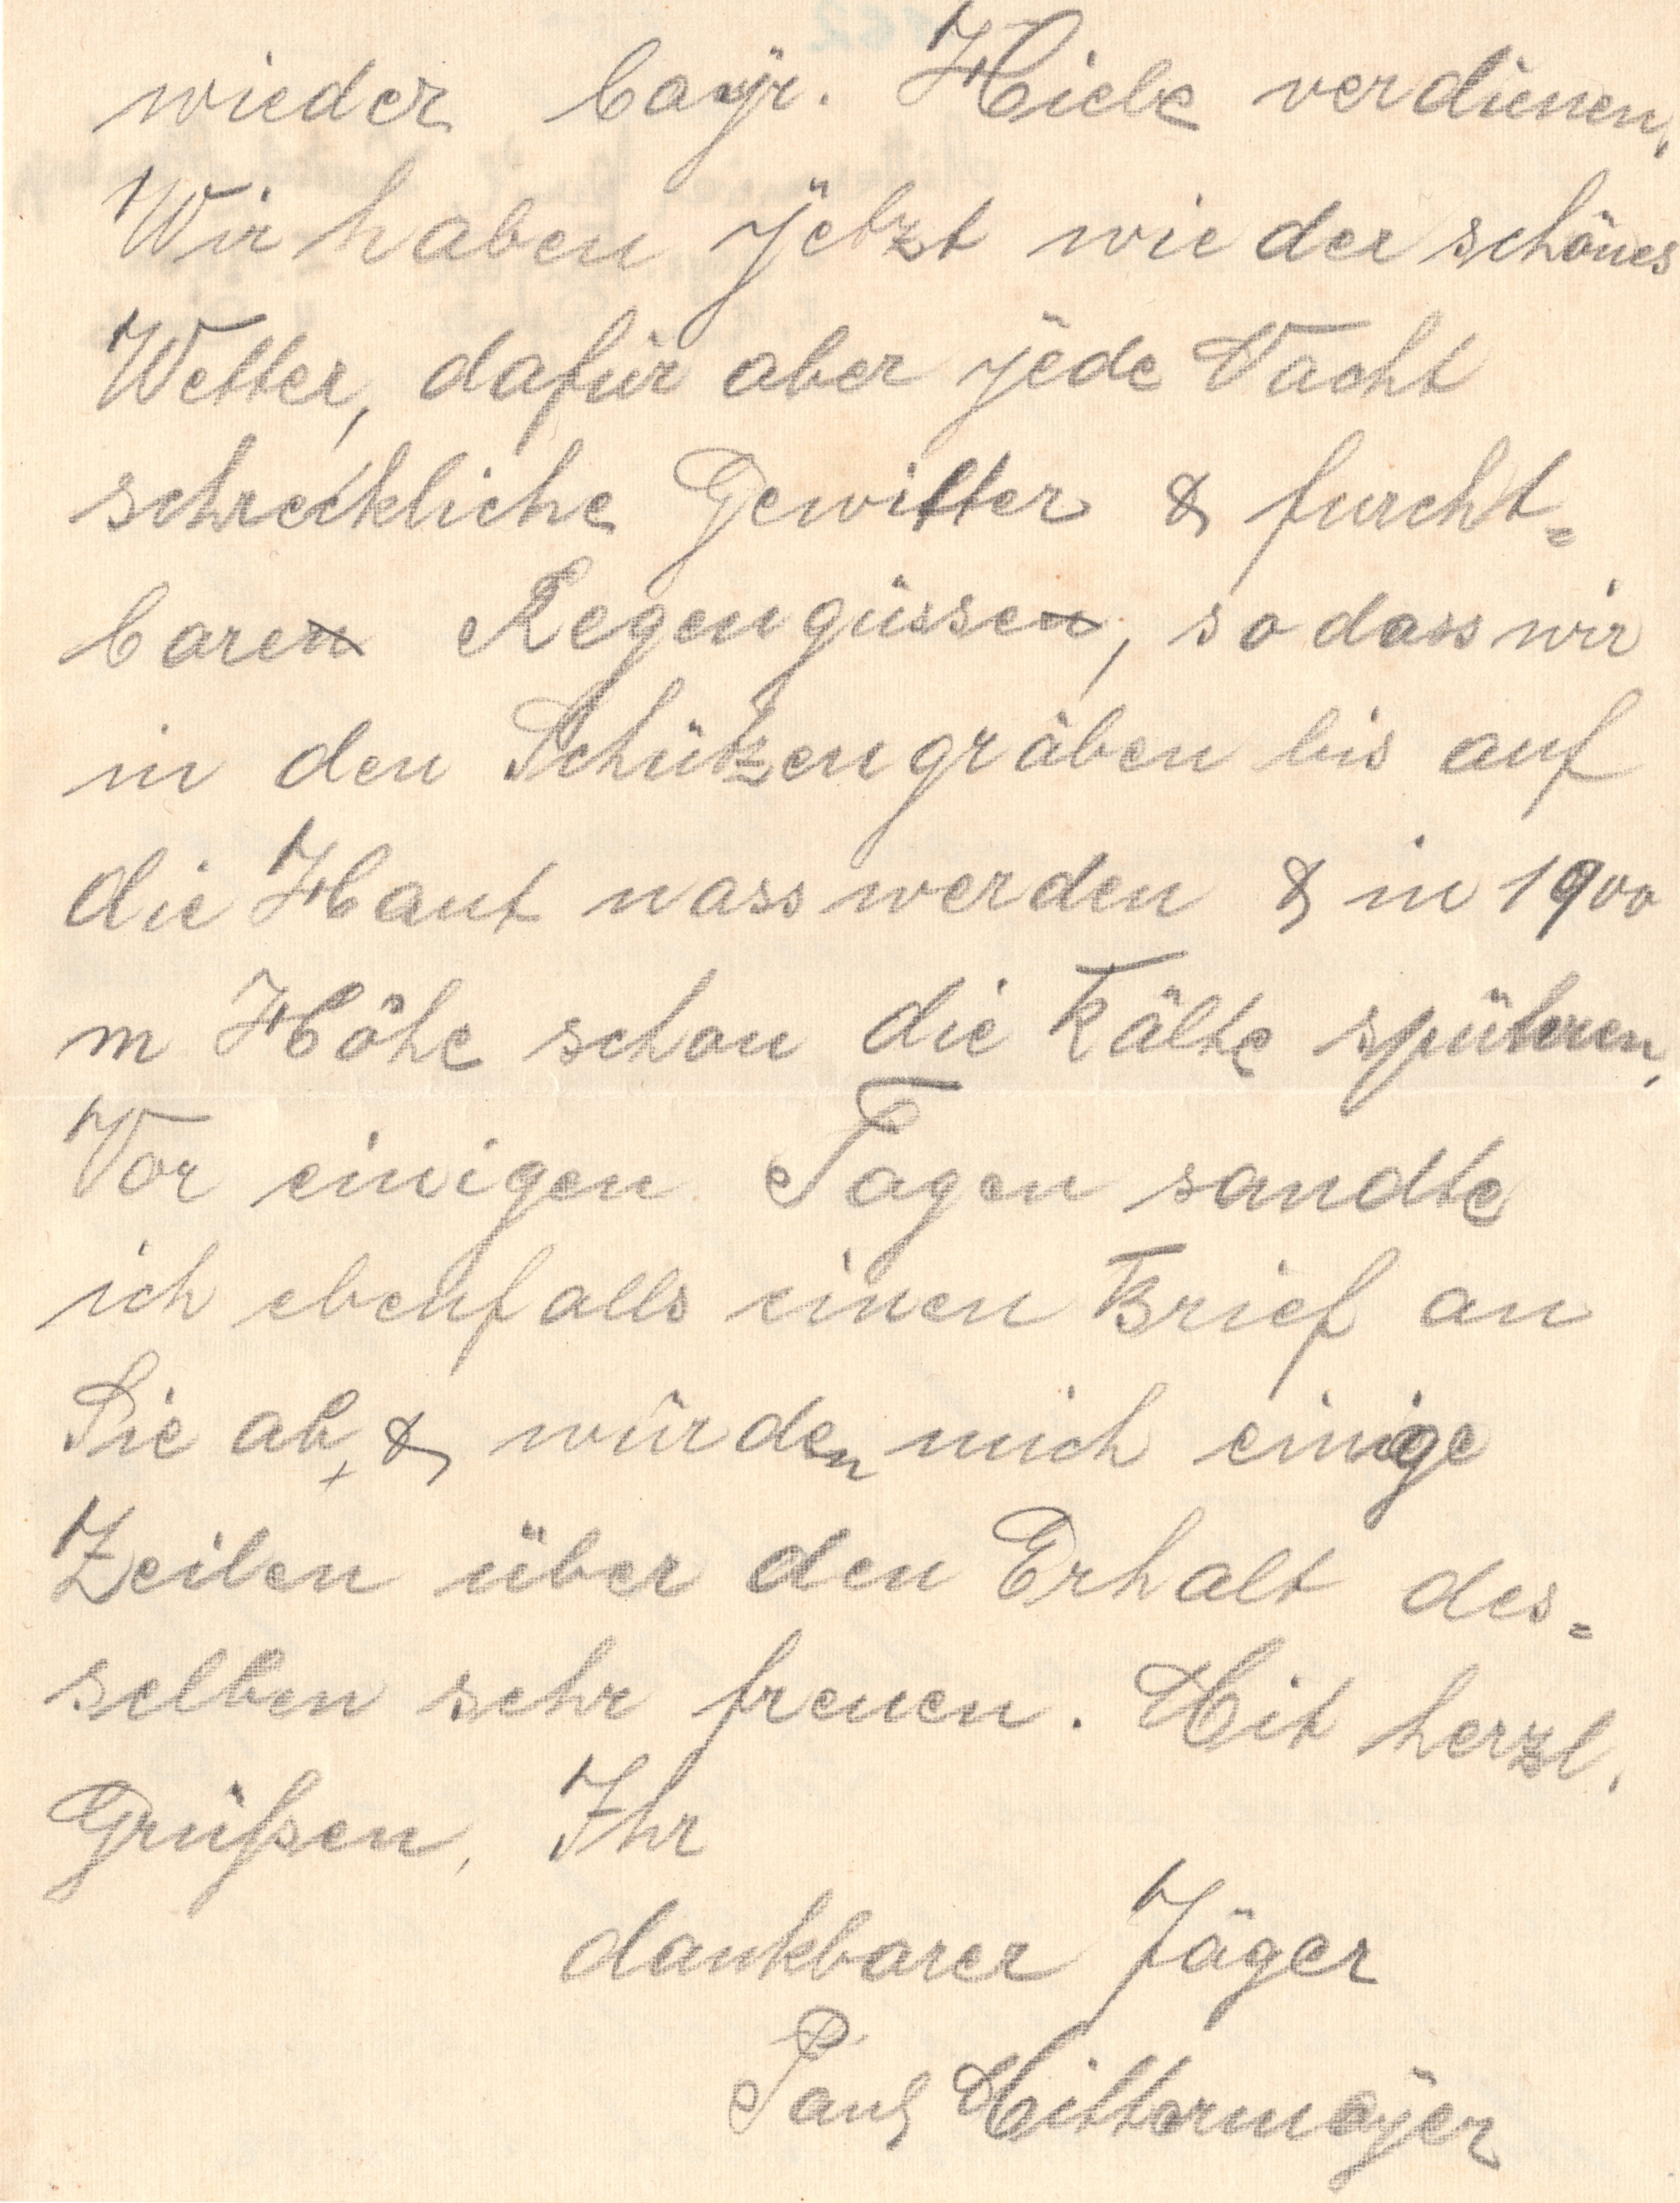 wieder bayr. Hiebe verdienen.
Wir haben jetzt wieder schönes
Wetter, dafür aber jede Nacht
schreckliche Gewitter & furcht=
baren Regengüssen, sodass wir
in den Schützengräben bis auf
die Haut nass werden & in 1900
m Höhe schon die Kälte spühren.
Vor einigen Tagen sandte
ich ebenfalls einen Brief an
Sie ab, & würden mich einige
Zeilen über den Erhalt des=
selben sehr freuen. Mit herzl.
Grüßen, Ihr
dankbarer Jäger
Paul Mittermayer